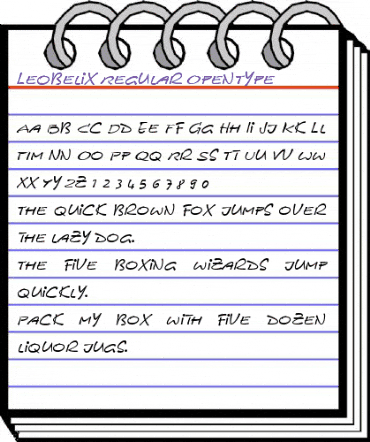 LEOBELIX REGULAR OPENTYPE
AA BB CC DD EE FF GG HH II JJ KK LL
MM NN OO PP QQ RR SS TT UU VV WW
XX YY ZZ 1 2 3 4 5 6 7 8 9 0
THE QUICK BROWN FOX JUMPS OVER
THE LAZY DOG.
THE FIVE BOXING WIZARDS JUMP
QUICKLY.
PACK MY BOX WITH FIVE DOZEN
LIQUOR JUGS.